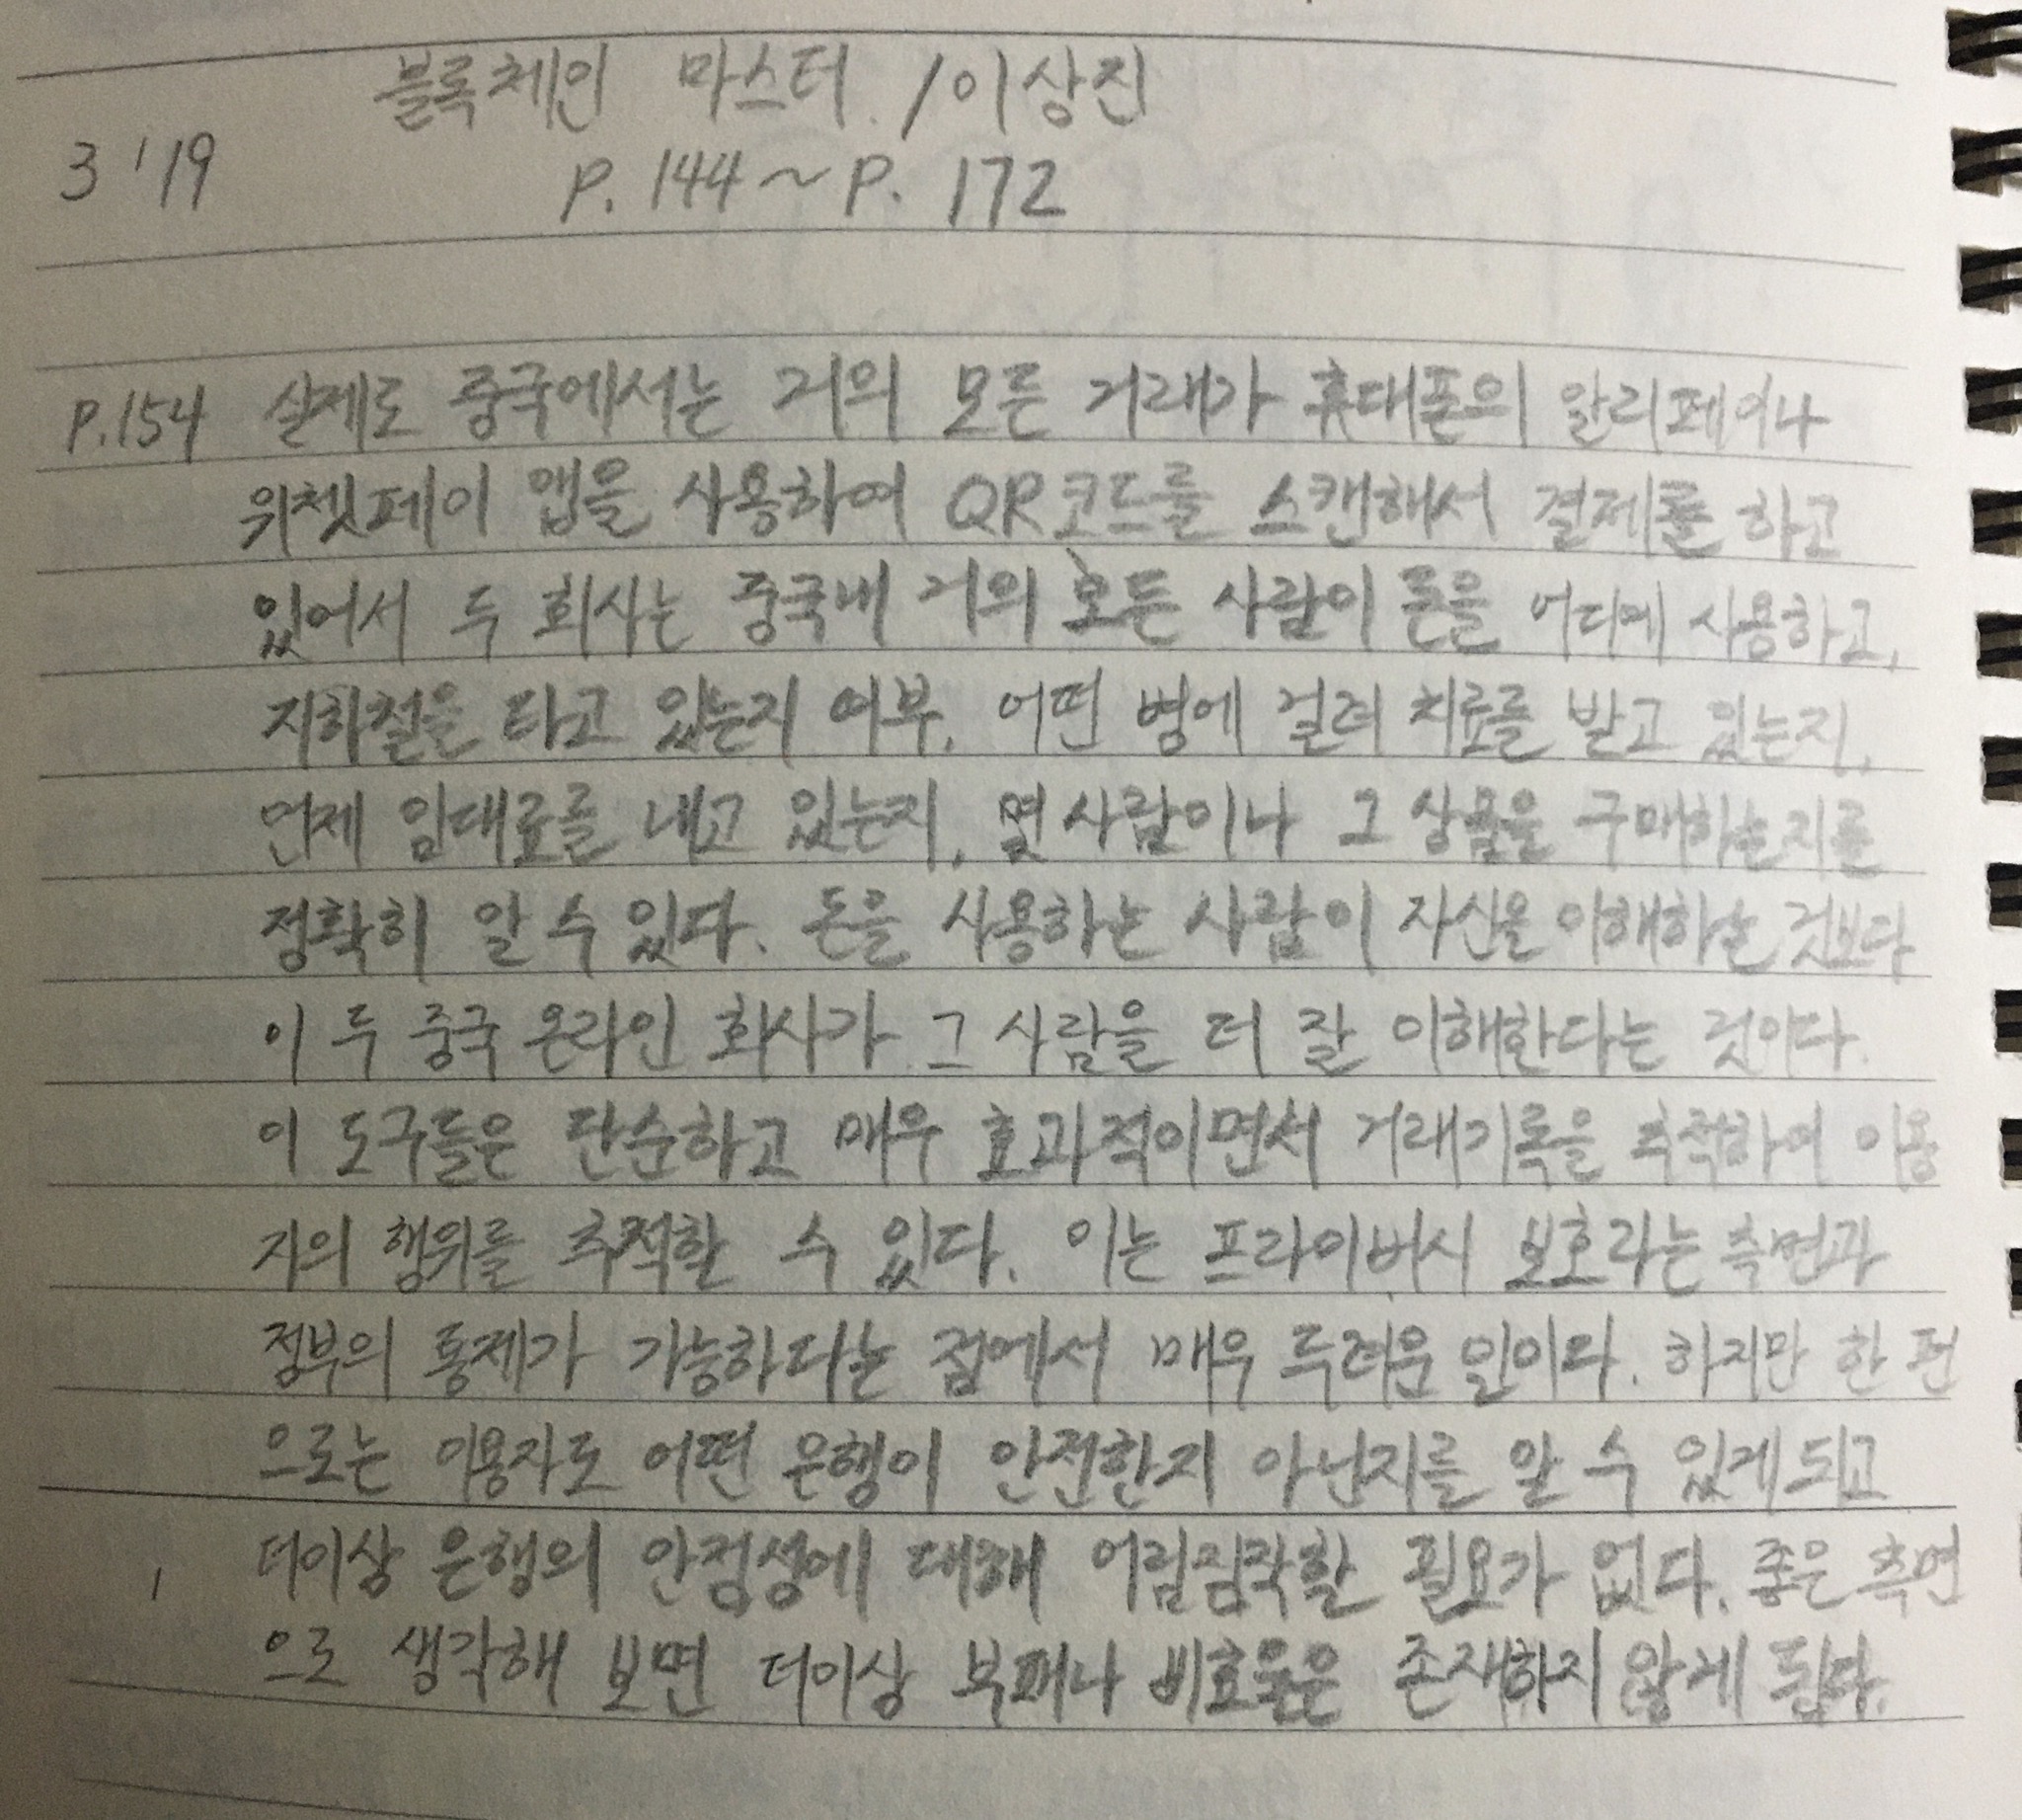 블록체인 마스터 / 이상진
3 '19 P. 144 ~ P. 172
P.154 실제로 중국에서는 거의 모든 거래가 휴대폰의 알리페이나
위쳇페이 앱을 사용하여 QR코드를 스캔해서 결제를 하고
있어서 두 회사는 중국내 거의 모든 사람이 돈을 어디에 사용하고,
지하철을 타고 있는지 여부, 어떤 병에 걸려 치료를 받고 있는지,
언제 임대료를 내고 있는지, 몇 사람이나 그 상품을 구매하는지를
정확히 알 수 있다. 돈을 사용하는 사람이 자신을 이해하는 것보다
이 두 중국 온라인 회사가 그 사람을 더 잘 이해한다는 것이다.
이 도구들은 단순하고 매우 효과적이면서 거래기록을 추적하여 이용
자의 행위를 추적할 수 있다. 이는 프라이버시 보호라는 측면과
정부의 통제가 가능하다는 점에서 매우 두려운 일이다. 하지만 한 편
으로는 이용자도 어떤 은행이 안전한지 아닌지를 알 수 있게 되고
더이상 은행의 안정성에 대해 어림짐작할 필요가 없다. 좋은 측면
으로 생각해 보면 더이상 부패나 비효율은 존재하지 않게 된다.